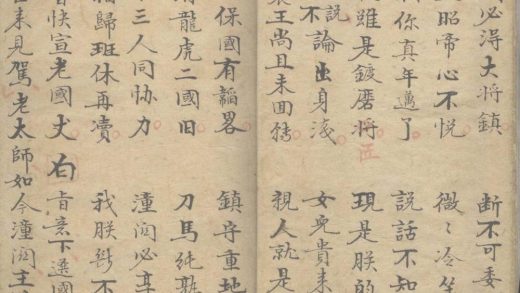 必得大将鎮 断不可委
昭帝心不悦 微〻冷
你真年邁了 説話不知
雖是鍍磨将 現是朕的
不論出身浅 女兒貴未
王尚且未回转 親人就是
保國有韜畧 鎮守重地
龍虎二國旧 刀馬純熟
三人同協力 潼関必享
歸班休再凟 我朕斷不
快宣老國丈 右 旨意下選國
来見駕老太師如今潼関主